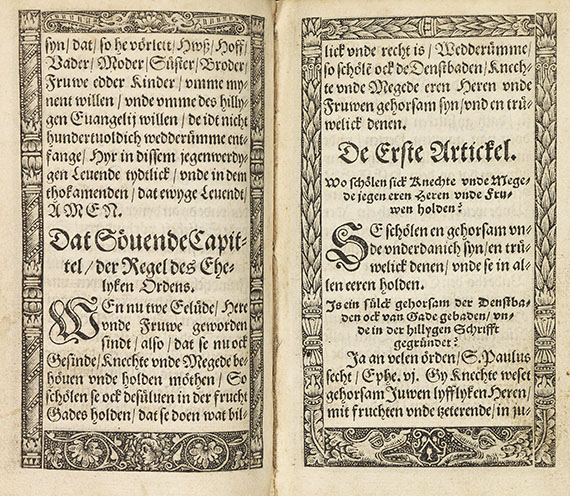 syn / dat / so he vörlett / Hwß / Hoff /
Vader / Moder / Süster / Broder /
Fruwe edder Kinder / vmme my-
nent willen / vnde vmme des hilly-
gen Euangelij willen / de idt nicht
hundertuoldich wedderümme ent-
fange / Hyr in dissem jegenwerdy-
gen Leuende tydtlick / vnde in dem
thokamenden / dat ewyge Leuendt /
AMEN.
Dat Söuende Capit-
tel / der Regel des Ehe-
lyken Ordens.
WEn nu twe Eelüde / Here
vnde Fruwe geworden
sindt / also / dat se nu ock
Gesinde / Knechte vnde Megede be-
höuen vnde holden möthen / So
schölen se ock desüluen in der frucht
Gades holden / dat se doen wat bil-
lick vnde recht is / Wedderümme /
so schölē ock de Denstbaden / Knech-
te vnde Megede eren Heren vnde
Fruwen gehorsam syn / vnd en trü-
welick denen.
De Erste Artickel.
Wo schölen sick Knechte vnde Mege-
de jegen eren Heren vnde Fru-
wen holden?
SE schölen en gehorsam vn-
de vnderdanich syn / en trü-
welick denen / vnde se in al-
len eeren holden.
Is ein sülck gehorsam der Denstba-
den ock van Gade gebaden / vn-
de in der hillygen Schrifft
gegründet?
Ja an velen örden / S. Paulus
secht / Ephe. vj. Gy Knechte weset
gehorsam Juwen lyfflyken Heren /
mit fruchten vnde tzeterende / in ju-